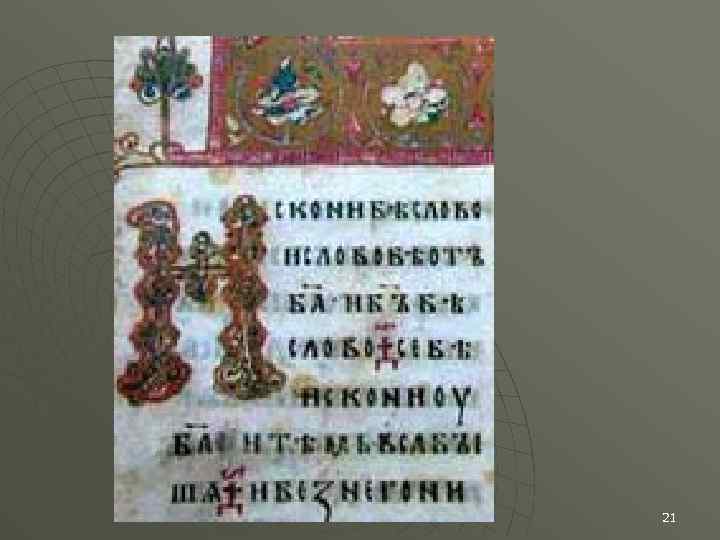 ИСКОНИБѢСЛОВО
ИСЛОВОБѢОТЪ
Б҃А·ИБ҃ЪБѢ
СЛОВО СЕБѢ·
ИСКОНИОУ
Б҃АИТѢМЬВСАБЪІ
ШѦ ИБЕЗНЕГОНИ
21